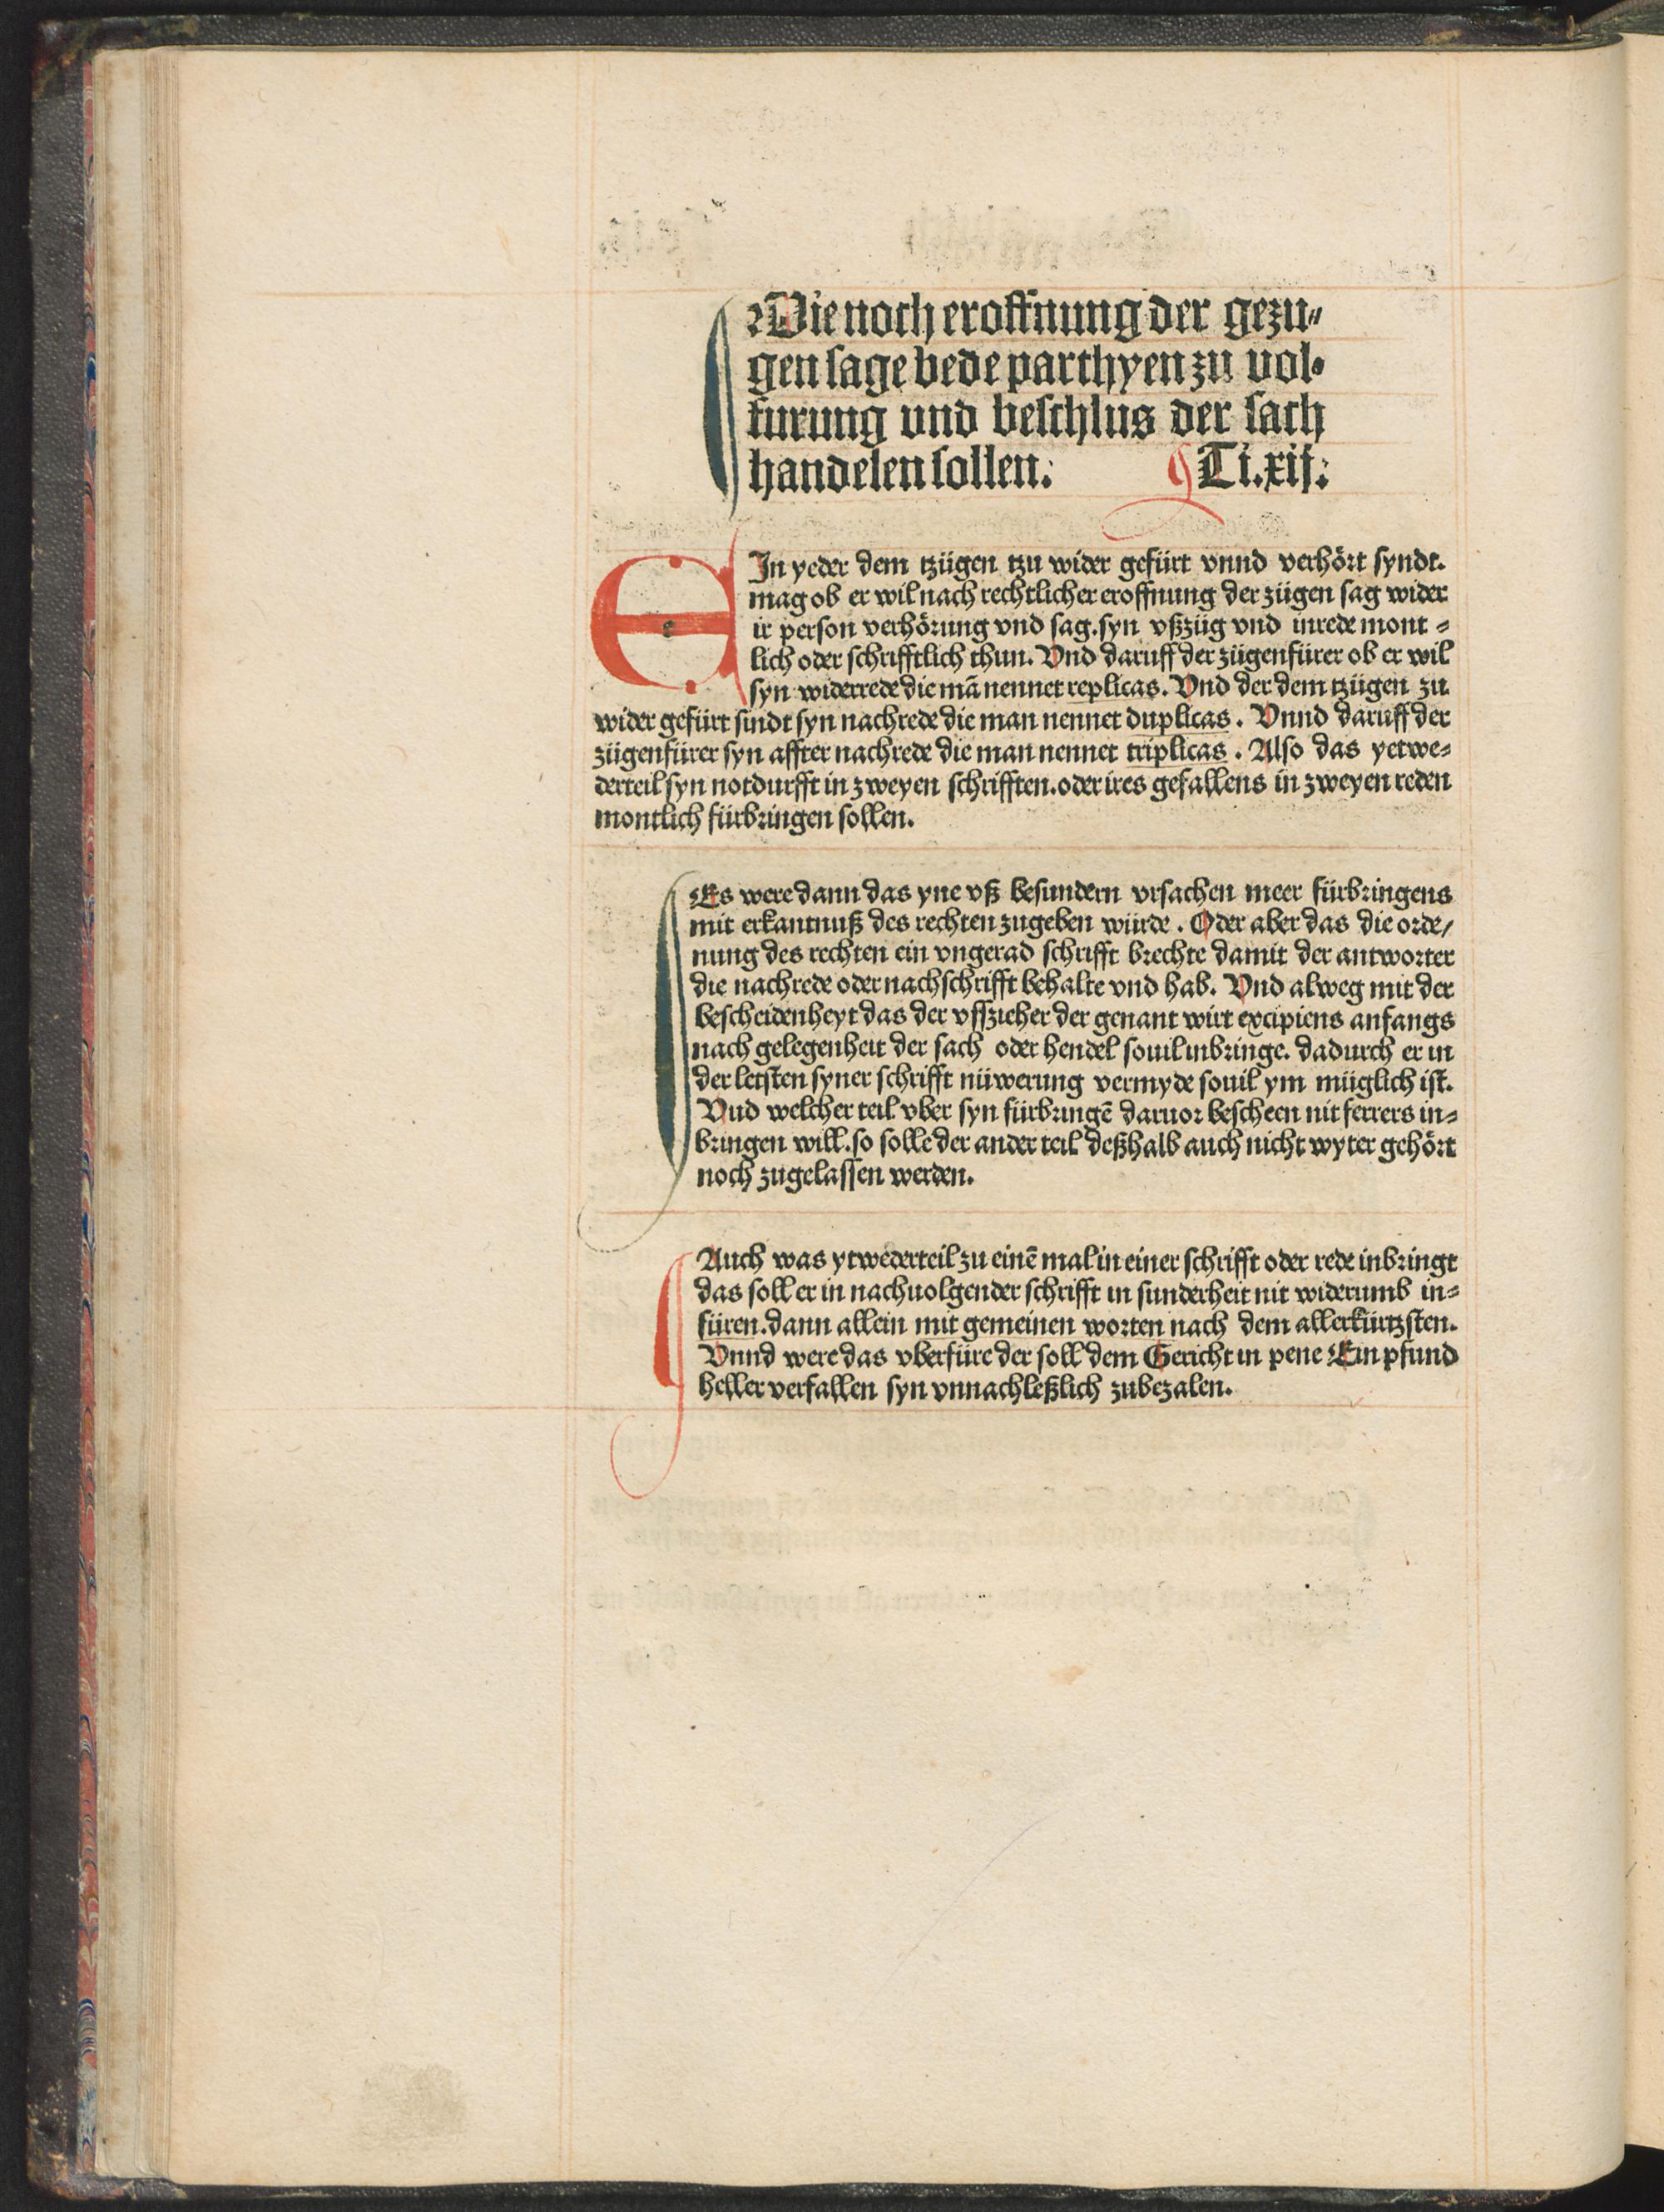 Wie noch eroffnung der gezu⸗
gen sage bede parthyen zu vol⸗
furung vnd beschlus der sach
handelen sollen. Ti. xij.
EIn yeder dem tzügen tzu wider gefürt vnnd verhört syndt.
mag ob er wil nach rechtlicher eroffnung der zügen sag wider
ir person verhörung vnd sag. syn vßzüg vnd inrede mont⸗
lich oder schrifftlich thun. Vnd daruff der zügenfürer ob er wil
syn widerrede die mā nennet replicas. Vnd der dem tzügen zu
wider gefürt sindt syn nachrede die man nennet duplicas. Vnnd daruff der
zügenfürer syn affter nachrede die man nennet triplicas. Also das yetwe⸗
derteil syn notdurfft in zweyen schrifften. oder ires gefallens in zweyen reden
montlich fürbringen sollen.
Es were dann das yne vß besundern vrsachen meer fürbringens
mit erkantnuß des rechten zugeben würde. Oder aber das die orde/
nung des rechten ein vngerad schrifft brechte damit der antworter
die nachrede oder nachschrifft behalte vnd hab. Vnd alweg mit der
bescheidenheyt das der vffzieher der genant wirt excipiens anfangs
nach gelegenheit der sach oder hendel souil inbringe. dadurch er in
der letsten syner schrifft nüwerung vermyde souil ym müglich ist.
Vnd welcher teil vber syn fürbringē daruor bescheen nit ferrers in⸗
bringen will. so solle der ander teil deßhalb auch nicht wyter gehört
noch zugelassen werden.
Auch was ytwederteil zu einē mal in einer schrifft oder rede inbringt
das soll er in nachuolgender schrifft in sunderheit nit widerumb in⸗
füren. dann allein mit gemeinen worten nach dem allerkürtzsten.
Vnnd were das vberfüre der soll dem Gericht in pene Ein pfund
heller verfallen syn vnnachleßlich zubezalen.